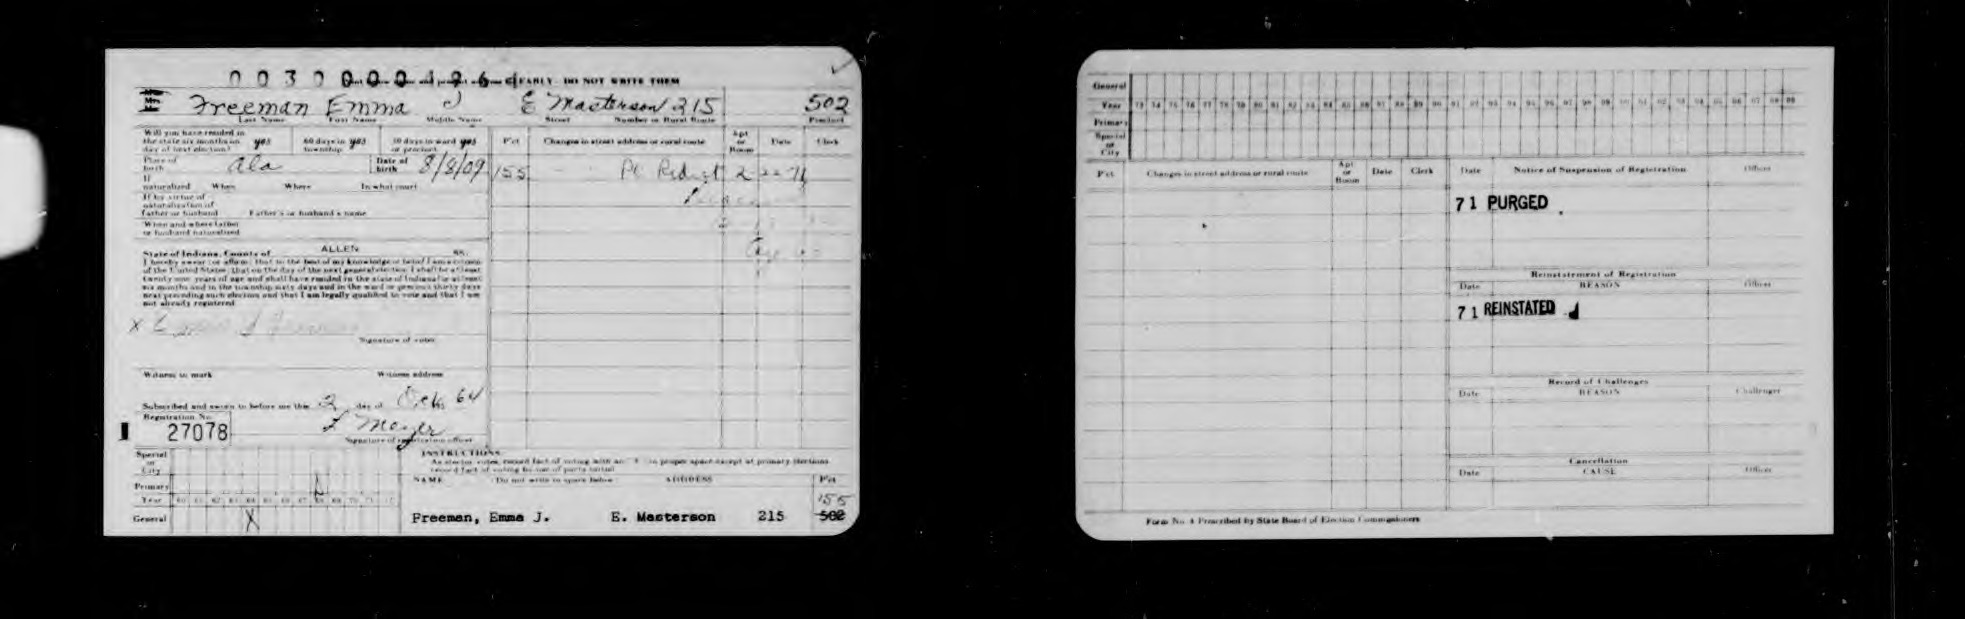 0 0 3 0 0 0 0 4 9 6 4 EARLY - DO NOT WRITE THEM
Mrs. Freeman Emma J E Masterson 215 502
Last Name First Name Middle Name Street Number or Rural Route Precinct
Will you have resided in
the state six months on yes 60 days in yes 30 days in ward yes
day of next election? township or precinct
Pct Changes in street address or rural route Apt or Room Date Clerk
Place of birth Ala Date of birth 8/8/09
155 Pc Redist 2 22 71
If
naturalized When Where In what court
If by virtue of
naturalization of
father or husband Father's or husband's name
When and where father
or husband naturalized
ALLEN
State of Indiana, County of SS:
I hereby swear (or affirm) that to the best of my knowledge or belief I am a citizen
of the United States; that on the day of the next general election I shall be at least
twenty-one years of age and shall have resided in the state of Indiana for at least
six months and in the township sixty days and in the ward or precinct thirty days
next preceding such election and that I am legally qualified to vote and that I am
not already registered.
X Emma J Freeman
Signature of voter
Witness to mark Witness address
Subscribed and sworn to before me this 2 day of Oct 64
Registration No.
27078
Meyer
Signature of registration officer
Special
or
City
Primary
Year 60 61 62 63 64 65 66 67 68 69 70 71 72
General X
INSTRUCTIONS
As elector votes, record fact of voting with an X in proper space except at primary elections
record fact of voting by use of party initial
NAME Do not write in space below ADDRESS Pct
155
Freeman, Emma J. E. Masterson 215 502
General
Year 73 74 75 76 77 78 79 80 81 82 83 84 85 86 87 88 89 90 91 92 93 94 95 96 97 98 99
Primary
Special
or
City
Pct Changes in street address or rural route Apt or Room Date Clerk
Date Notice of Suspension of Registration Officer
71 PURGED
Reinstatement of Registration
Date REASON Officer
71 REINSTATED
Record of Challenges
Date REASON Challenger
Cancellation
Date CAUSE Officer
Form No. 4 Prescribed by State Board of Election Commissioners